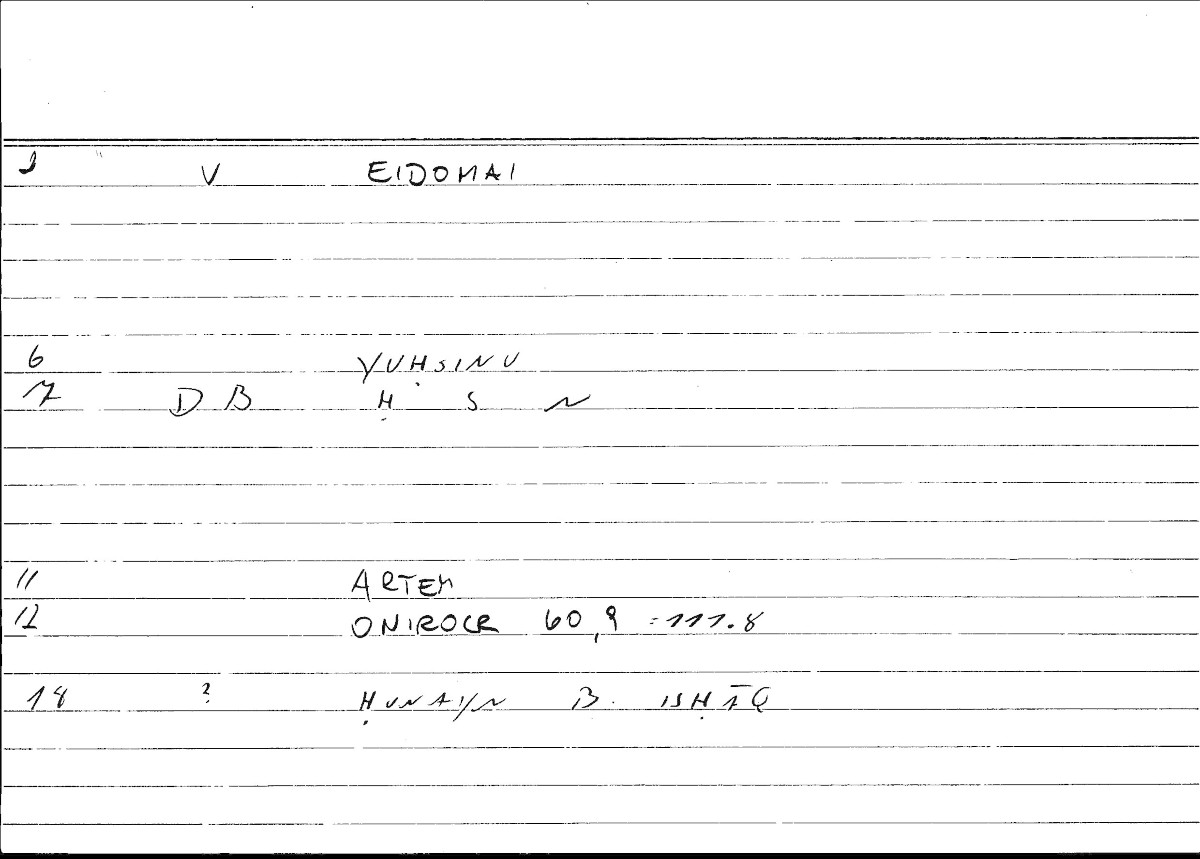 1 V EIDOMAI
6 YUḤSINU
7 DB Ḥ S N
11 ARTEM
12 ONIROCR 60,9 = 111.8
18 ? ḤUNAYN B. ISḤĀQ